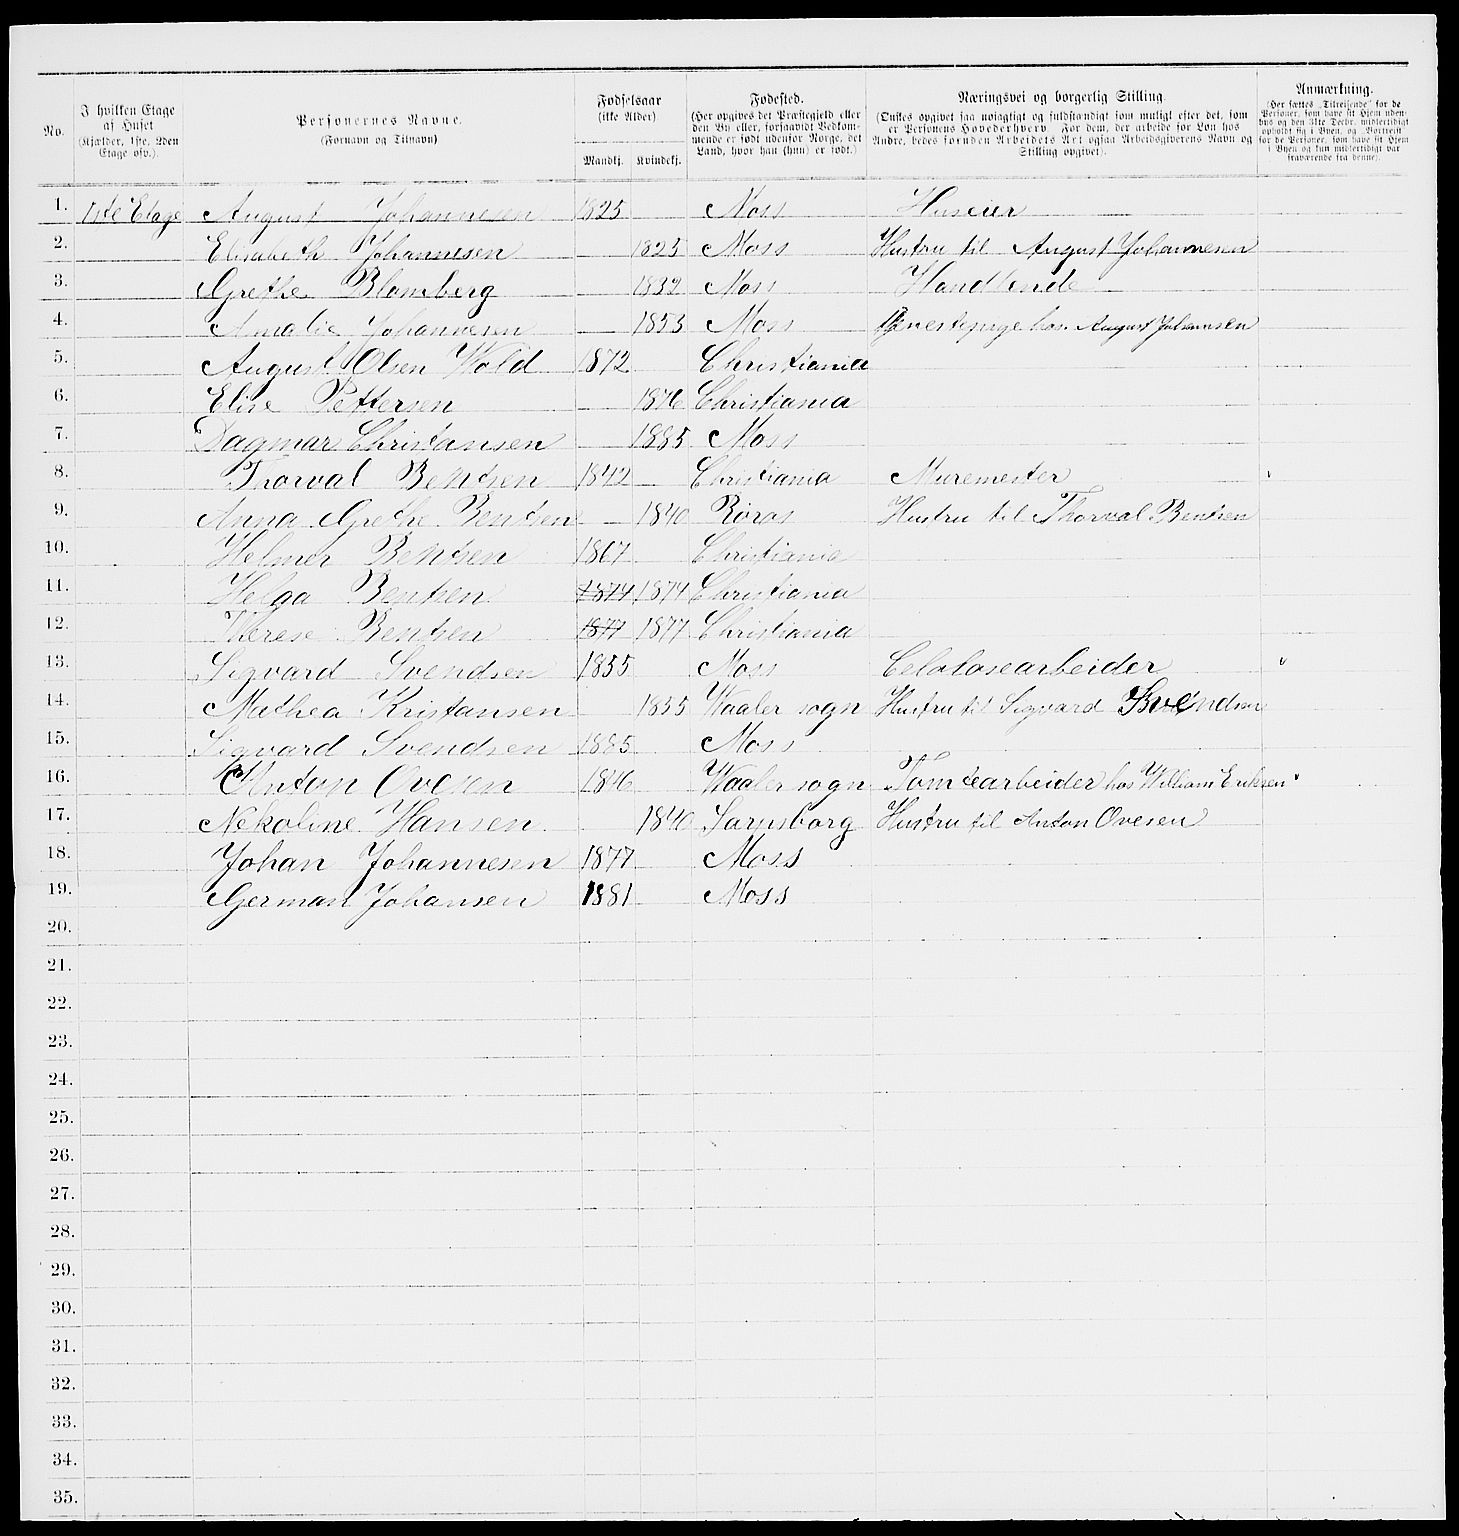 No.
I hvilken Etage af Huset (Kjælder, 1ste, 2den Etage osv.).
Personernes Navne.
(Fornavn og Tilnavn)
Fødselsaar
(ikke Alder)
Mandkj. Kvindekj.
Fødested.
(Her opgives det Præstegjeld eller den By eller, forsaavidt Vedkommende er født udenfor Norge, det Land, hvor han (hun) er født.)
Næringsvei og borgerlig Stilling.
(Ønskes opgivet saa nøiagtigt og fuldstændigt som muligt efter det, som er Personens Hovederhverv. For dem, der arbeide for Løn hos Andre, bedes foruden Arbeidets Art ogsaa Arbeidsgiverens Navn og Stilling opgivet).
Anmærkning.
(Her sættes „Tilreisende“ for de Personer, som have sit Hjem udenbys og den 31te Decbr. midlertidigt opholdt sig i Byen, og „Bortreist“ for de Personer, som have sit Hjem i Byen og kun midlertidigt var fraværende fra denne).
1. 1ste Etage August Johannesen 1825 Moss Huseier
2. Elisabeth Johannesen 1825 Moss Hustru til August Johannesen
3. Grethe Blomberg 1832 Moss Handlende
4. Amalie Johannesen 1853 Moss hos August Johansen
5. August Olsen Wold 1872 Christiania
6. Elise Pettersen 1876 Christiania
7. Dagmar Christansen 1885 Moss
8. Thorval Bentsen 1842 Christiania Muremester
9. Anna Grethe Bentsen 1840 Røros Hustru til Thorval Bentsen
10. Helmer Bentsen 1867 Christiania
11. Helga Bentsen 1874 1874 Christiania
12. Therese Bentsen 1877 1877 Christiania
13. Sigvard Svendsen 1855 Moss Celolosearbeider
14. Mathea Kristansen 1855 Waaler sogn Hustru til Sigvard Svendsen
15. Sigvard Svendsen 1885 Moss
16. Anton Ovesen 1846 Waaler sogn Tomtearbeider hos William Eriksen
17. Nekoline Hansen 1840 Sarpsborg Hustru til Anton Ovesen
18. Johan Johannesen 1877 Moss
19. German Johansen 1881 Moss
20.
21.
22.
23.
24.
25.
26.
27.
28.
29.
30.
31.
32.
33.
34.
35.